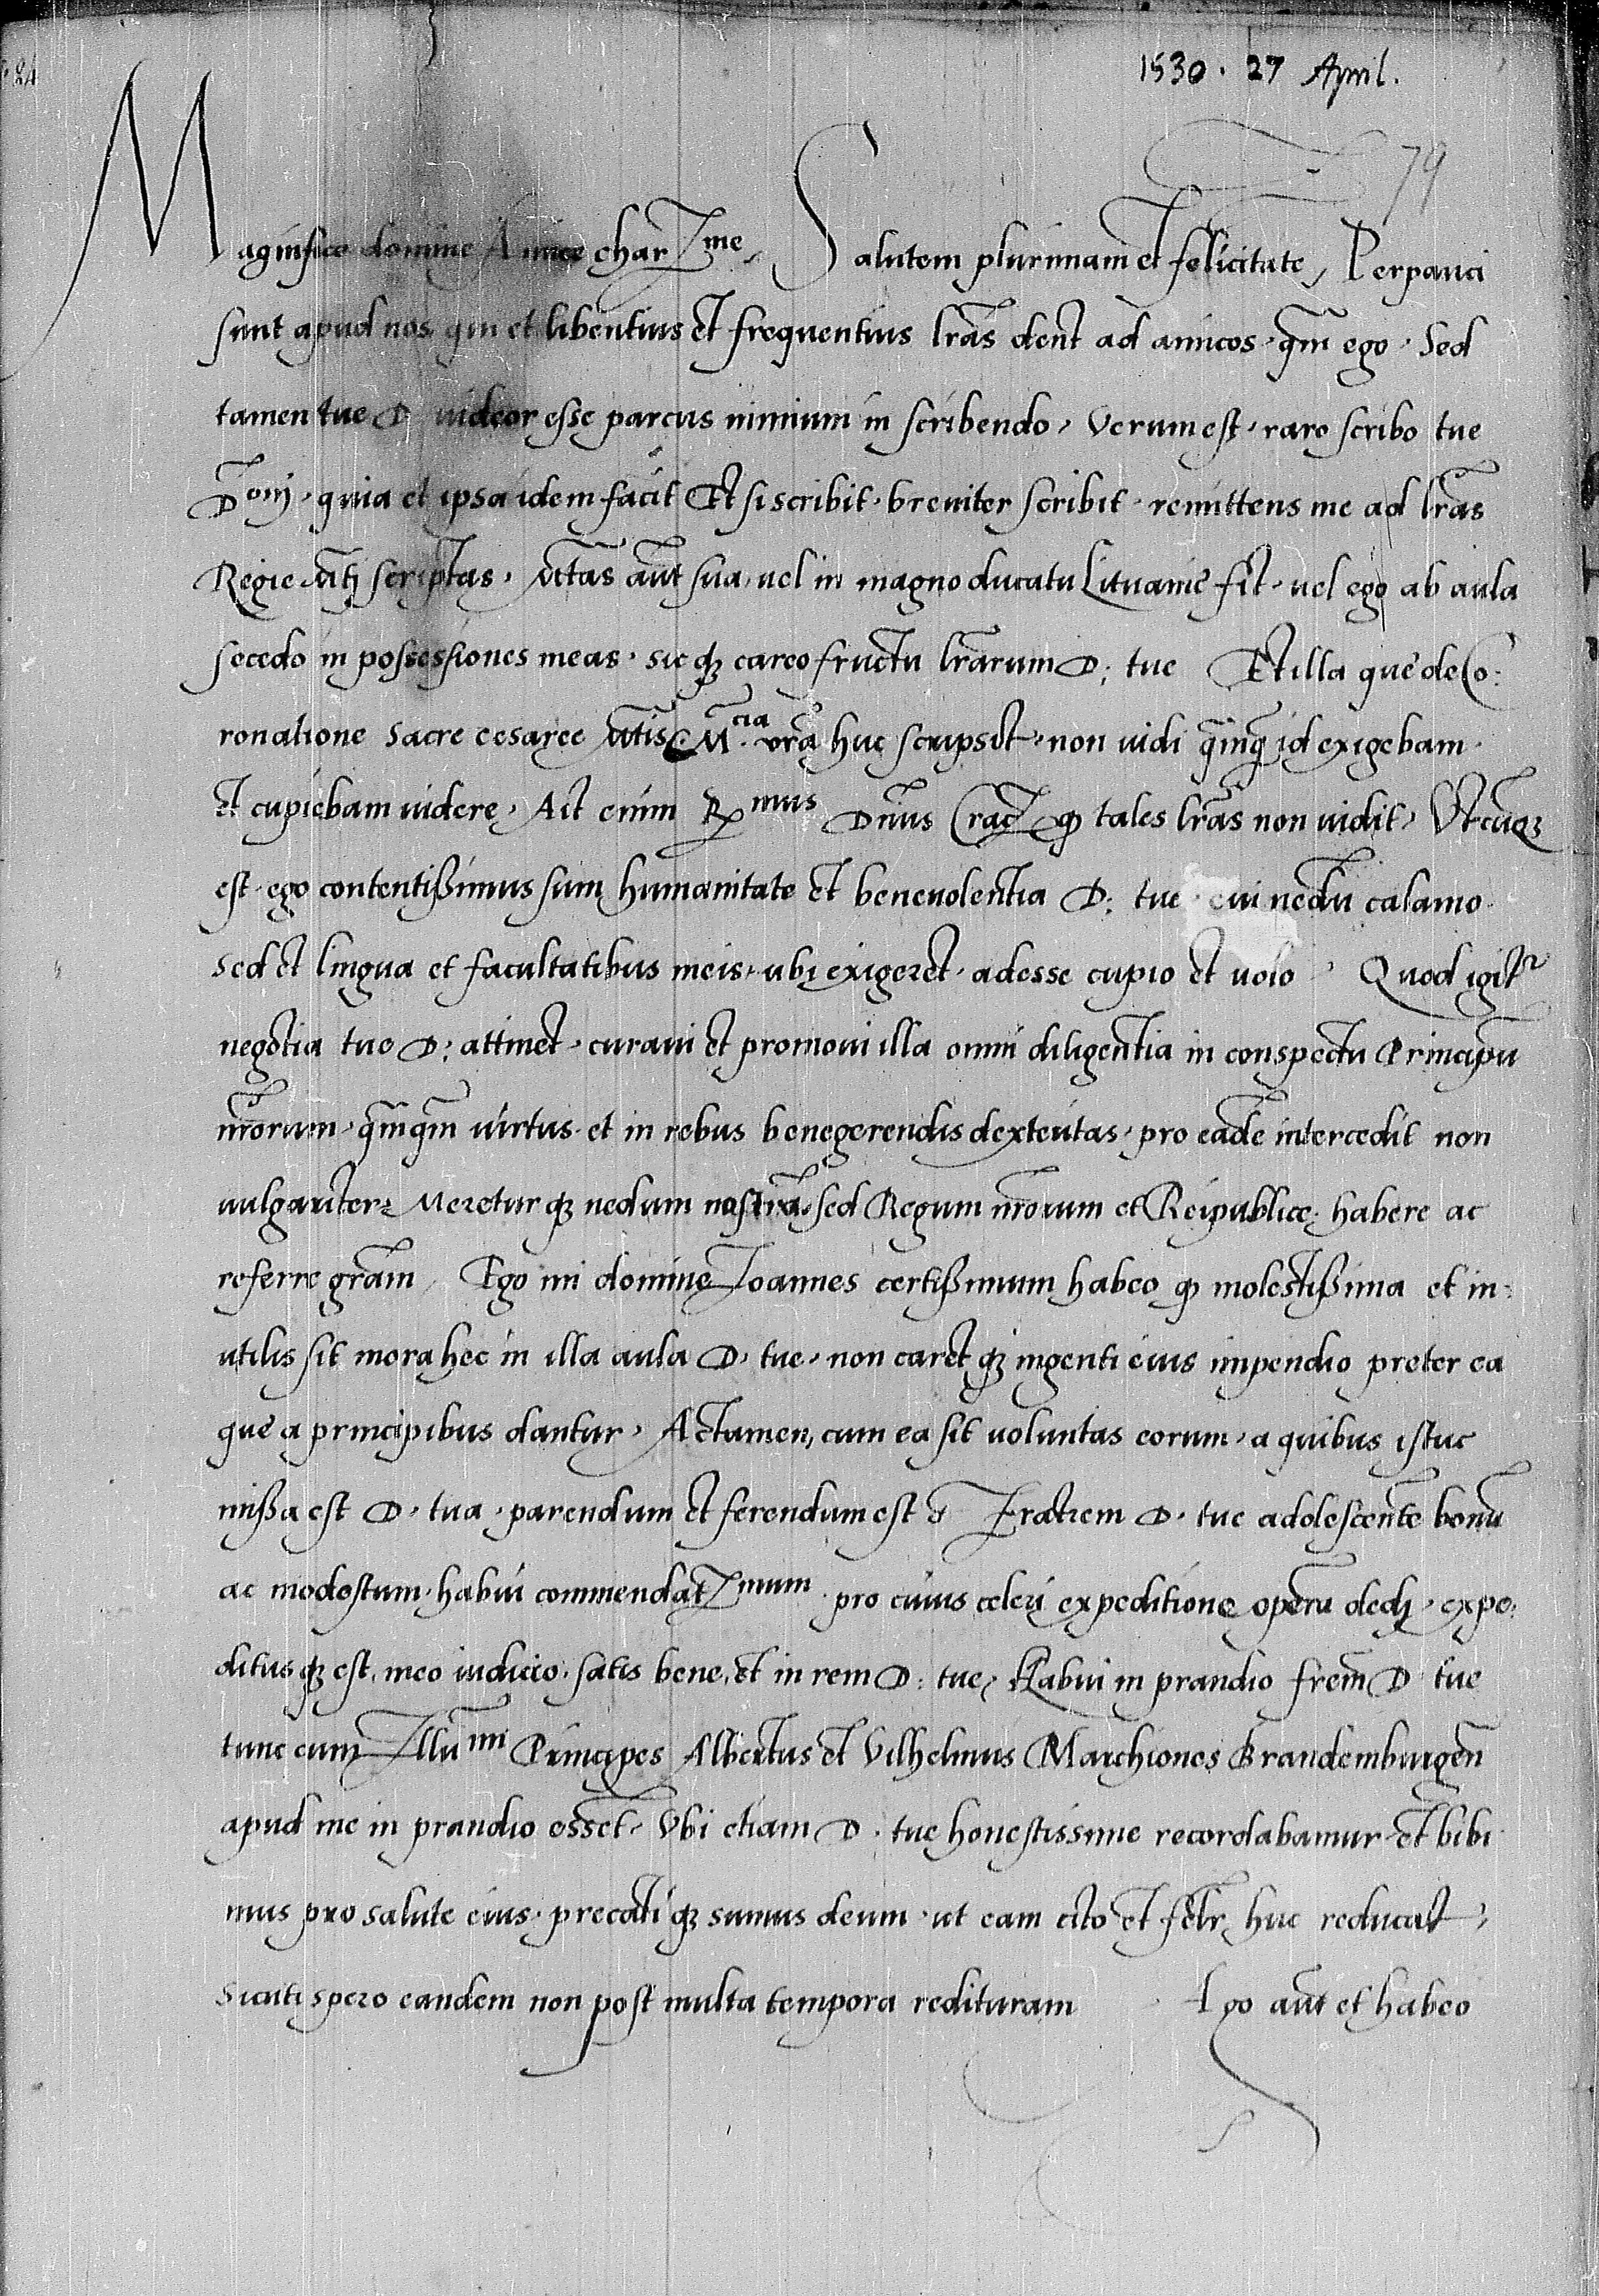 1530 · 27 April.
79
Magnifice domine Amice char me, Salutem plurimam et felicitatē, Perpauci
sunt apud nos qui et libentius et frequentius lr̃as dent ad amicos · qm̃ ego · Sed
tamen tue D videor esse parcus nimium in scribendo, Verum est · raro scribo tue
D̃onj · quia et ipsa idem facit Et si scribit · breviter scribit · remittens me ad lr̃as
Regie m̃tj scriptas · M̃tas aũt sua, vel in magno ducatu Lituanie fit · vel ego ab aula
secedo in possessiones meas · sicqȝ careo fructu lr̃arum D: tue Et illa que de Co:
ronatione Sacre cesaree m̃tis M cia vr̃a huc scripsit, non vidi q̃mq̃ id exigebam ·
et cupiebam videre, Ait enim R mus Dñus Crac̃ qȝ tales lr̃as non vidit, Utcūqȝ
est · ego contentißimus sum humanitate et benevolentia D: tue · cui nedū calamo ·
sed et lingua et facultatibus meis, ubi exigeret · adesse cupio et volo, Quod igitr
negotia tue D: attinet, curavi et promovi illa omni diligentia in conspectu Principū
nr̃orum · qm̃qm̃ virtus · et in rebus bene gerendis dexteritas · pro eadē intercedit non
vulgariter, Meretur qȝ nedum nostrā, sed Regum nr̃orum et Reipublice, habere ac
referre gr̃am, Ego mi domine Joannes certißimum habeo qȝ molestißima et in:
utilis sit mora hec in illa aula D · tue, non caret qȝ ingenti eius impendio preter ea
que a principibus dantur, Actamen, cum ea sit voluntas eorum, a quibus istuc
mißa est D · tua, parendum et ferendum est Fratrem D · tue adolescentē bonū
ac modestum · habui commendat mum · pro cuius celeri expeditione operā dedj, expe:
ditus qȝ est, meo iudicio · satis bene, et in rem D: tue, Habui in prandio frem̃ D tue
tunc cum Illu mi Principes Albertus et Vilhelmus Marchiones Brandemburgen̄
apud me in prandio essēt, Ubi etiam D · tue honestissime recordabamur, et bibi
mus pro salute eius, precati qȝ sumus deum · ut eam cito et felr̃ huc reducat,
Sicuti spero eandem non post multa tempora redituram Ego aũt et habeo